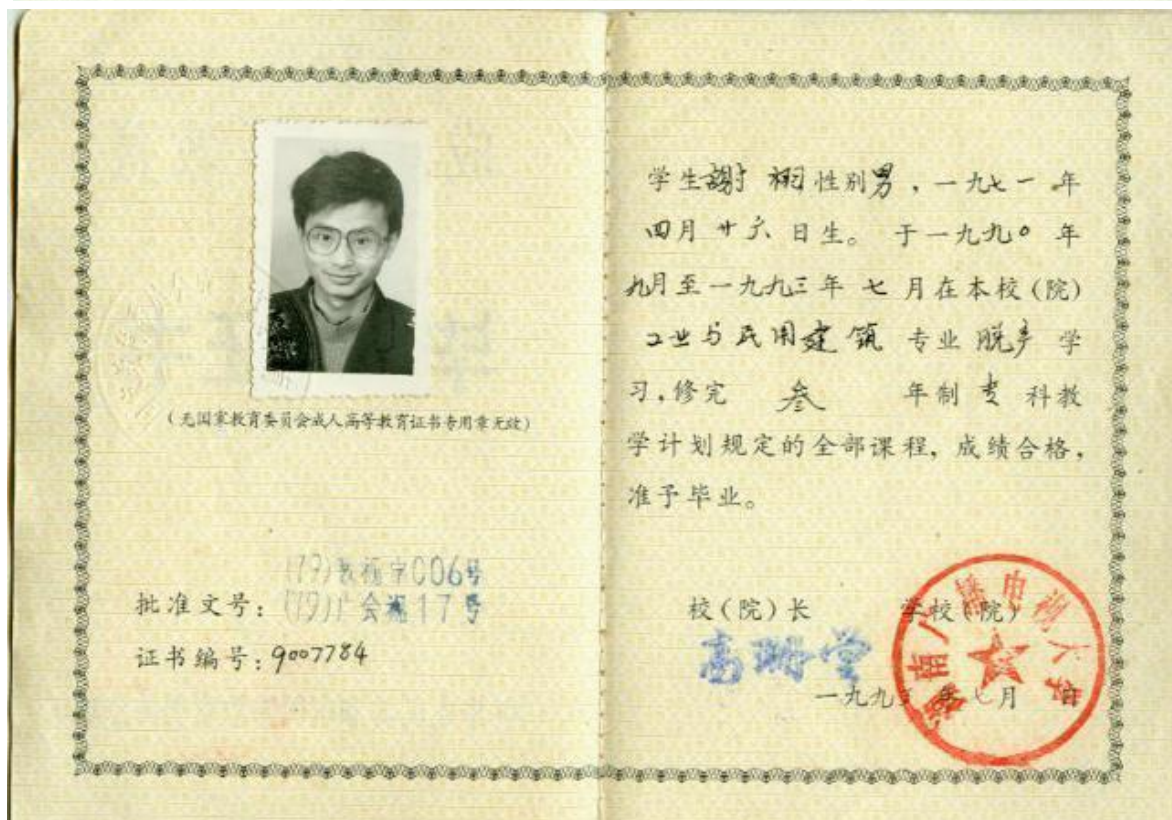 (无国家教育委员会成人高等教育证书专用章无效)
(79)教视字006号
批准文号: (79)广会湘17号
证书编号: 9007784
学生謝 栩性别男, 一九七一年
四月廿六日生。于一九九〇年
九月至一九九三年七月在本校(院)
工业与民用建筑专业脱产学
习,修完 叁 年制专科教
学计划规定的全部课程, 成绩合格,
准予毕业。
校(院)长 学校(院)
高 堂
一九九三年七月 日
湖南广播电视大学